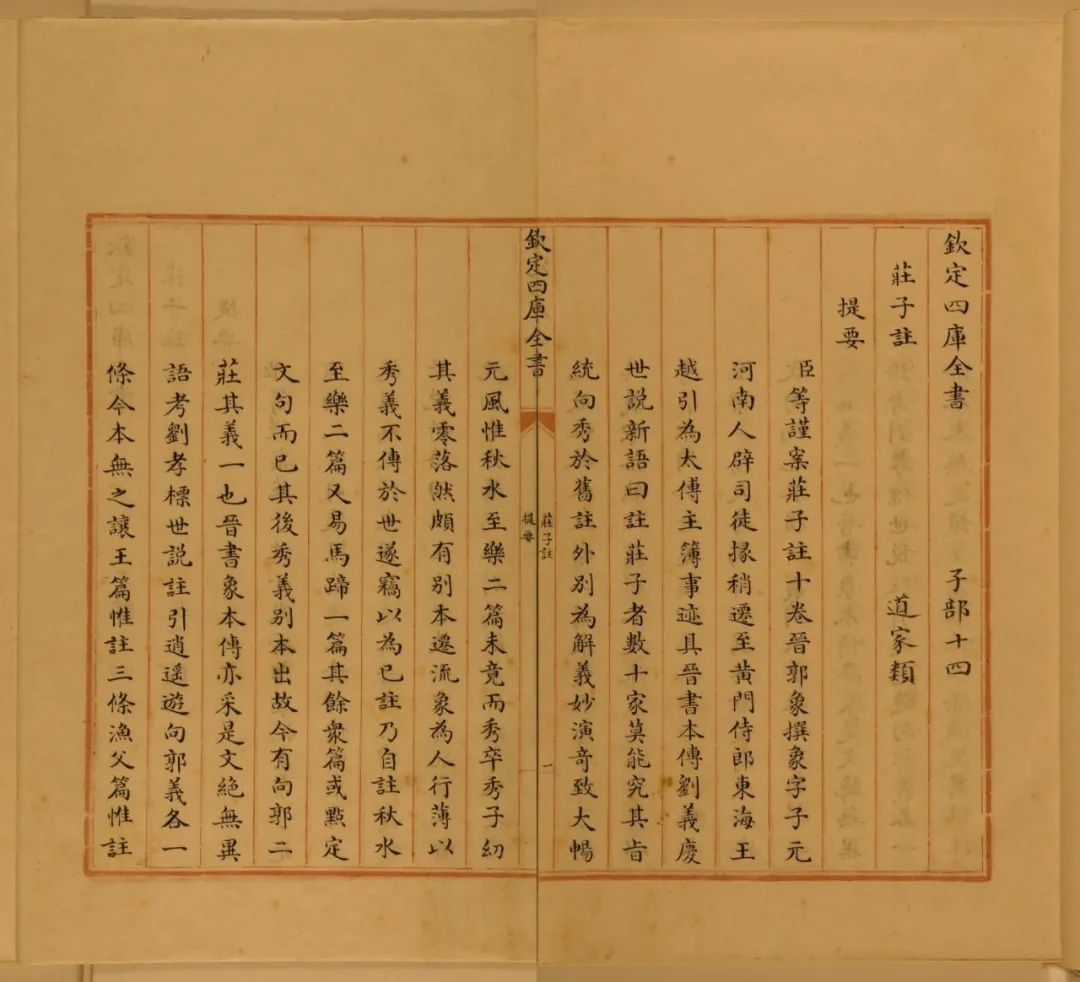 欽定四庫全書 子部十四
莊子註 道家類
提要
臣等謹案莊子註十卷晉郭象撰象字子元
河南人辟司徒掾稍遷至黃門侍郎東海王
越引為太傅主簿事迹具晉書本傳劉義慶
世說新語曰註莊子者數十家莫能究其旨
統向秀於舊註外別為解義妙演奇致大暢
欽定四庫全書
莊子註
提要
一
元風惟秋水至樂二篇未竟而秀卒秀子幼
其義零落然頗有別本遷流象為人行薄以
秀義不傳於世遂竊以為己註乃自註秋水
至樂二篇又易馬蹄一篇其餘衆篇或點定
文句而已其後秀義別本出故今有向郭二
莊其義一也晉書象本傳亦采是文絕無異
語考劉孝標世說註引逍遙遊向郭義各一
條今本無之讓王篇惟註三條漁父篇惟註